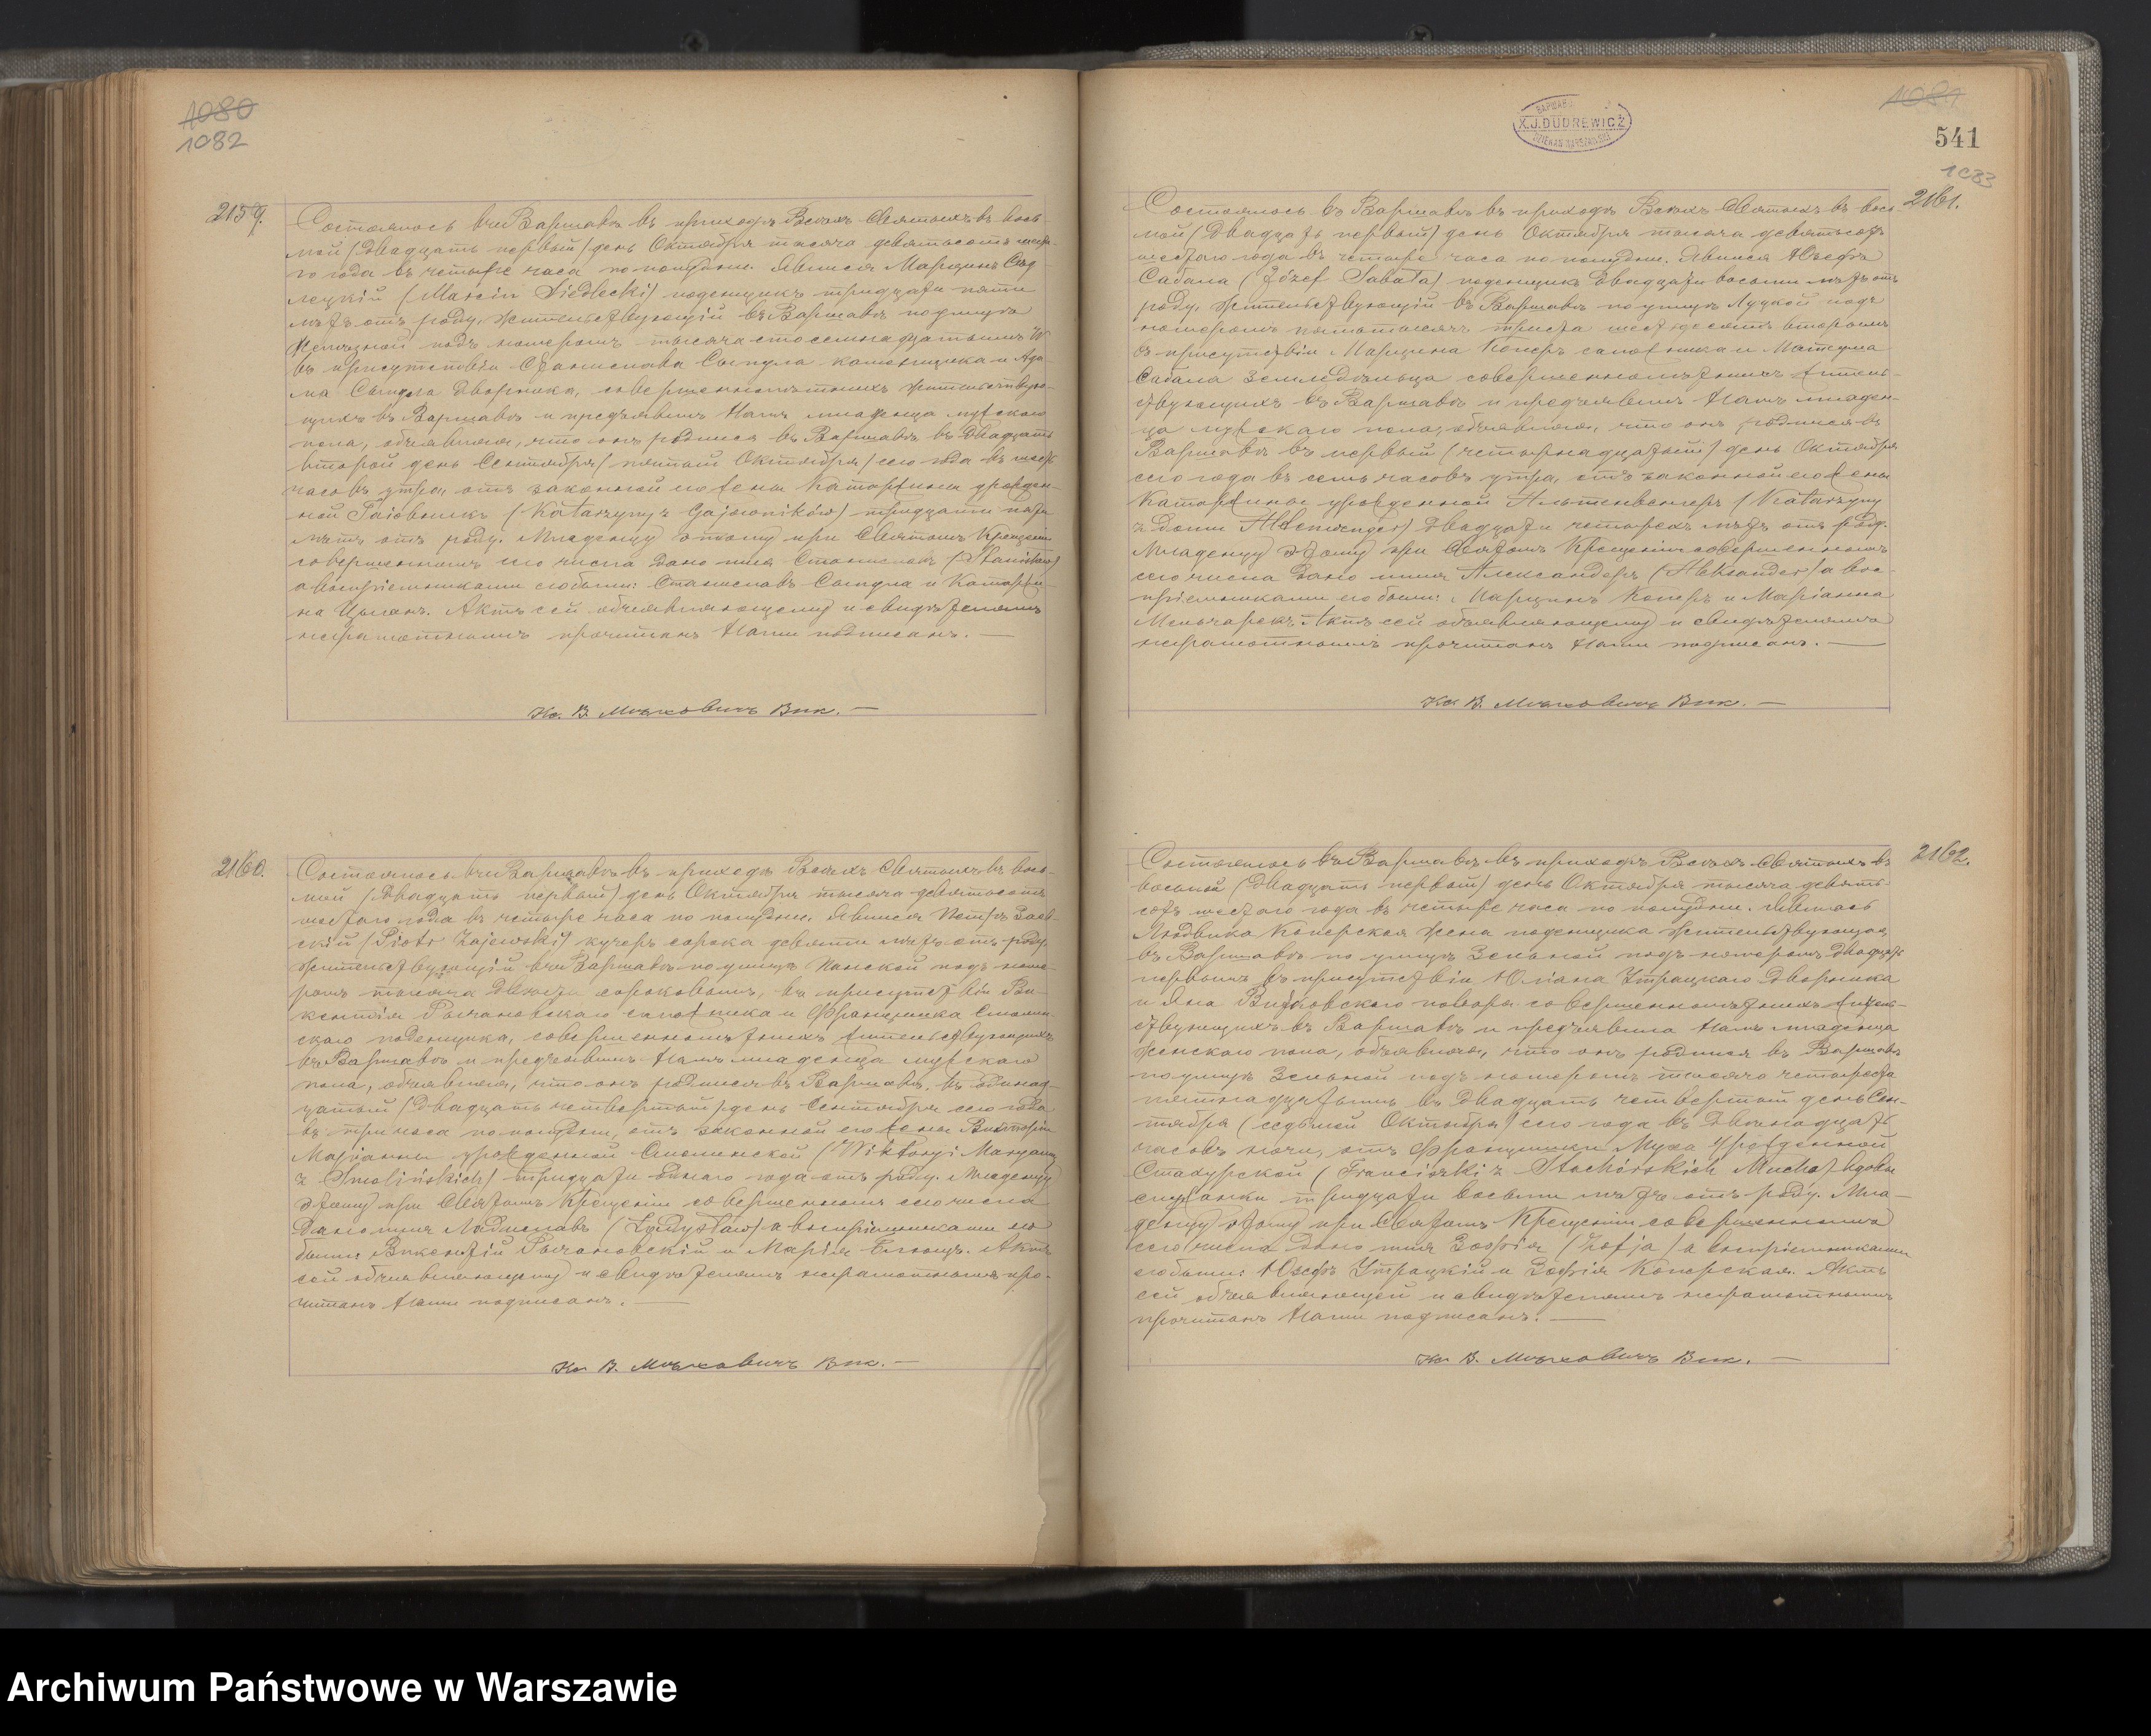 1080
1082
2159.
Состоялось въ Варшавѣ въ приходѣ Всѣхъ Святыхъ въ вось-
мой (двадцать первый) день Октября тысяча девятьсотъ шеста-
го года въ четыре часа по полудни. Явился Марцинъ Сѣд-
лецкій (Marcin Siedlecki) поденщикъ тридцати пяти
лѣтъ отъ роду, жительствующій въ Варшавѣ по улицѣ
подъ номеромъ тысяча сто семнадцатымъ W
въ присутствіи Станислава Сыпула каменщика и Ада-
ма Сыпула дворника, совершеннолѣтнихъ жительствую-
щихъ въ Варшавѣ и предъявилъ Намъ младенца мужскаго
пола, объявляя, что онъ родился въ Варшавѣ въ двадцать
второй день Сентября (пятый Октября) сего года въ шесть
часовъ утра, отъ законной его жены Катаржины урожден-
ной Гаiовникъ (Katarzyny z Gajowników) тридцати пяти
лѣтъ отъ роду. Младенцу этому при Святомъ Крещеніи
совершенномъ сего числа дано имя Станиславъ (Stanisław)
а воспріемниками его были: Станиславъ Сыпула и Катаржи-
на Цыганъ. Актъ сей объявляющему и свидѣтелямъ
неграмотнымъ прочитанъ Нами подписанъ. —
Кс. В. Мѣховичъ Вик. —
2160.
Состоялось въ Варшавѣ въ приходѣ Всѣхъ Святыхъ въ вось-
мой (двадцать первый) день Октября тысяча девятьсотъ
шестаго года въ четыре часа по полудни. Явился Петръ Заев-
скій (Piotr Zajewski) кучеръ сорока девяти лѣтъ отъ роду
жительствующій въ Варшавѣ по улицѣ Панской подъ номе-
ромъ тысяча двѣсти сороковымъ, въ присутствіи Ви-
кентія Рычановскаго сапожника и Францишка Смолин-
скаго поденщика, совершеннолѣтнихъ жительствующихъ
въ Варшавѣ и предъявилъ Намъ младенца мужскаго
пола, объявляя, что онъ родился въ Варшавѣ, въ одинад-
цатый (двадцать четвертый) день Сентября сего года
въ три часа по полудни, отъ законной его жены Викторіи
Маріанны урожденной Смолинской (Wiktoryi Maryanny
z Smolińskich) тридцати одного года отъ роду. Младенцу
этому при Святомъ Крещеніи совершенномъ сего числа
дано имя Владиславъ (Władysław) а воспріемниками его
были Викентій Рычановскій и Марія. Актъ
сей объявляющему и свидѣтелямъ неграмотнымъ про-
читанъ Нами подписанъ. —
Кс. В. Мѣховичъ Вик. —
ВАРШАВ
X.J.DUDREWICZ
DZIEKAN WARSZAWSKI
1081
541
1083
2161.
Состоялось въ Варшавѣ въ приходѣ Всѣхъ Святыхъ въ вось-
мой (двадцать первый) день Октября тысяча девятьсотъ
шестаго года въ четыре часа по полудни. Явился Юзефъ
Сабала (Józef Sabała) поденщикъ двадцати восьми лѣтъ отъ
роду, жительствующій въ Варшавѣ по улицѣ Луцкой подъ
номеромъ пять тысячъ триста шестьдесятъ вторымъ
въ присутствіи Марцина Коперъ сапожника и Матеуша
Сабала земледѣльца совершеннолѣтнихъ житель-
ствующихъ въ Варшавѣ и предъявилъ Намъ младен-
ца мужскаго пола, объявляя, что онъ родился въ
Варшавѣ въ первый (четырнадцатый) день Октября
сего года въ семь часовъ утра, отъ законной его жены
Катаржины урожденной Альтенвенгеръ (Katarzyny
z domu Altenwenger) двадцати четырехъ лѣтъ отъ роду.
Младенцу этому при Святомъ Крещеніи совершенномъ
сего числа дано имя Александеръ (Aleksander) а вос-
пріемниками его были: Марцинъ Коперъ и Маріанна
Мельчарекъ. Актъ сей объявляющему и свидѣтелямъ
неграмотнымъ прочитанъ Нами подписанъ. —
Кс. В. Мѣховичъ Вик. —
2162.
Состоялось въ Варшавѣ въ приходѣ Всѣхъ Святыхъ въ
восьмой (двадцать первый) день Октября тысяча девять-
сотъ шестаго года въ четыре часа по полудни. Явилась
Людвика Коперская жена поденщика жительствующая
въ Варшавѣ по улицѣ Зельной подъ номеромъ двадцать
первымъ въ присутствіи Юліана Утрацкаго дворника
и Яна Витковскаго повара совершеннолѣтнихъ житель-
ствующихъ въ Варшавѣ и предъявила Намъ младенца
женскаго пола, объявляя, что онъ родился въ Варшавѣ
по улицѣ Зельной подъ номеромъ тысяча четыреста
пятнадцатымъ въ двадцать четвертый день Сен-
тября (седьмой Октября) сего года въ двѣнадцать
часовъ ночи, отъ Францишки Муха урожденной
Стахурской (Franciszki z Stachórskich Mucha) вдовы
служанки тридцати восьми лѣтъ отъ роду. Мла-
денцу этому при Святомъ Крещеніи совершенномъ
сего числа дано имя Зофія (Zofja) а воспріемниками
его были: Юзефъ Утрацкій и Зофія Коперская. Актъ
сей объявляющей и свидѣтелямъ неграмотнымъ
прочитанъ Нами подписанъ. —
Кс. В. Мѣховичъ Вик. —
Archiwum Państwowe w Warszawie